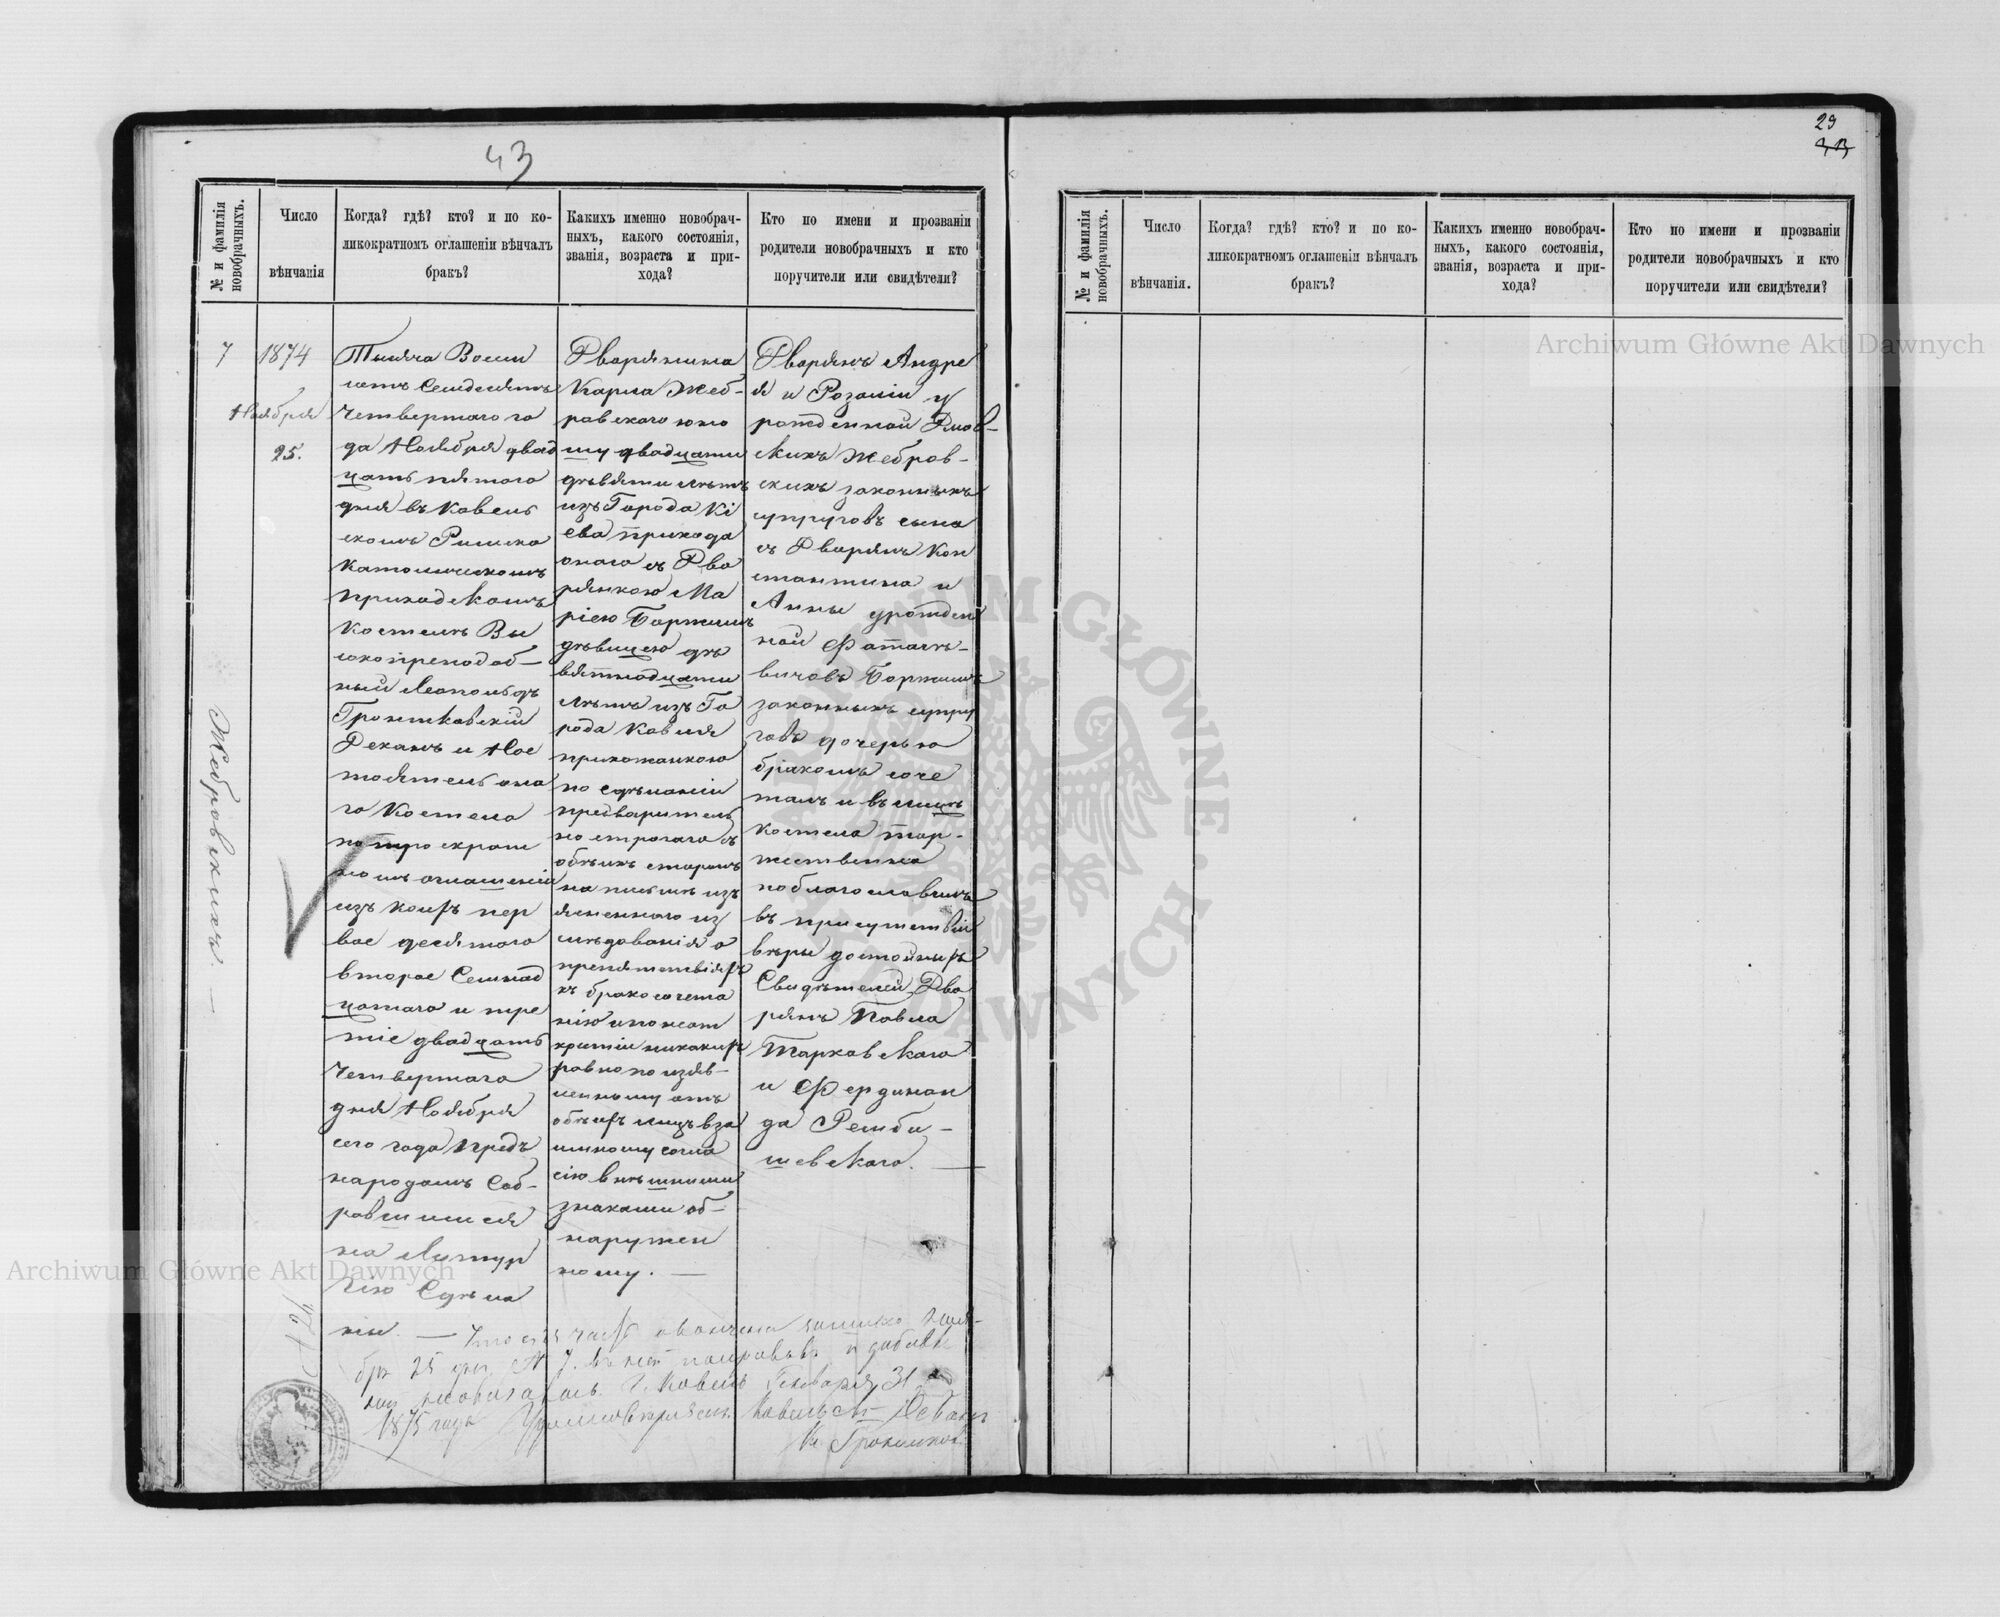 43
№ и фамилія новобрачныхъ.
Число вѣнчанія
Когда? гдѣ? кто? и по ко-
ликократномъ оглашеніи вѣнчалъ
бракъ?
Какихъ именно новобрач-
ныхъ, какого состоянія,
званія, возраста и при-
хода?
Кто по имени и прозванію
родители новобрачныхъ и кто
поручители или свидѣтели?
7
Жебровскихъ. —
1874
Ноября
25.
Тысяча Восем
сотъ Семдесятъ
четвертаго го
да Ноября двад
цать пятаго
дня въ Ковель
скомъ Римско
Католическомъ
приходскомъ
Костелѣ Вы
сокопреподоб-
ный Леопольдъ
Гронтковскій
Деканъ и Нас
тоятель она
го Костела
по троекрат
номъ оглашеніи
изъ коихъ пер
вое десятаго
второе Семнад
цатаго и тре
тіе двадцать
четвертаго
дня Ноября
сего года предъ
народомъ Соб-
равшимся
на Литур
гію Сдѣла
ны. —
Дворянина
Карла Жеб-
ровскаго юно
шу двадцати
девяти лѣтъ
изъ Города Кі
ева прихода
онаго съ Дво
рянкою Ма
ріею Боржимъ
дѣвицею де
вятнадцати
лѣтъ изъ Го
рода Ковля
прихожанкою
по сдѣланіи
предваритель
но строгаго съ
обѣихъ сторонъ
на письмѣ изъ
ясненнаго из
слѣдованія о
препятствіяхъ
къ бракосочета
нію и по неот
крытіи никакихъ
равно по изъяв-
ленному отъ
обѣихъ лицъ вза
имному согла
сію внѣшними
знаками об-
наружен
ному. —
Дворянъ Андре
я и Розаліи у
рожденной
скихъ Жебров-
скихъ законныхъ
супруговъ сына
съ Дворянъ Кон
стантина и
Анны урожден
ной
вичовъ Боржимъ
законныхъ супру
говъ дочерью
бракомъ соче
талъ и въ лицѣ
костела тор-
жественно
поблагословилъ
въ присутствіи
вѣры достойныхъ
Свидѣтелей Дво
рянъ Павла
Тарковскаго
и Фердинан
да Ремби-
шевскаго. —
Что сія часть окончена Ноя-
бря 25 дня № 7. въ ней и добавк
Г. Ковель Генваря 31
1875 года Ковельскій Деканъ
К. Гронтков.
29
43
№ и фамилія новобрачныхъ.
Число вѣнчанія.
Когда? гдѣ? кто? и по ко-
ликократномъ оглашеніи вѣнчалъ
бракъ?
Какихъ именно новобрач-
ныхъ, какого состоянія,
званія, возраста и при-
хода?
Кто по имени и прозваніи
родители новобрачныхъ и кто
поручители или свидѣтели?
Archiwum Główne Akt Dawnych
Archiwum Główne Akt Dawnych
ARCHIWUM GŁÓWNE AKT DAWNYCH